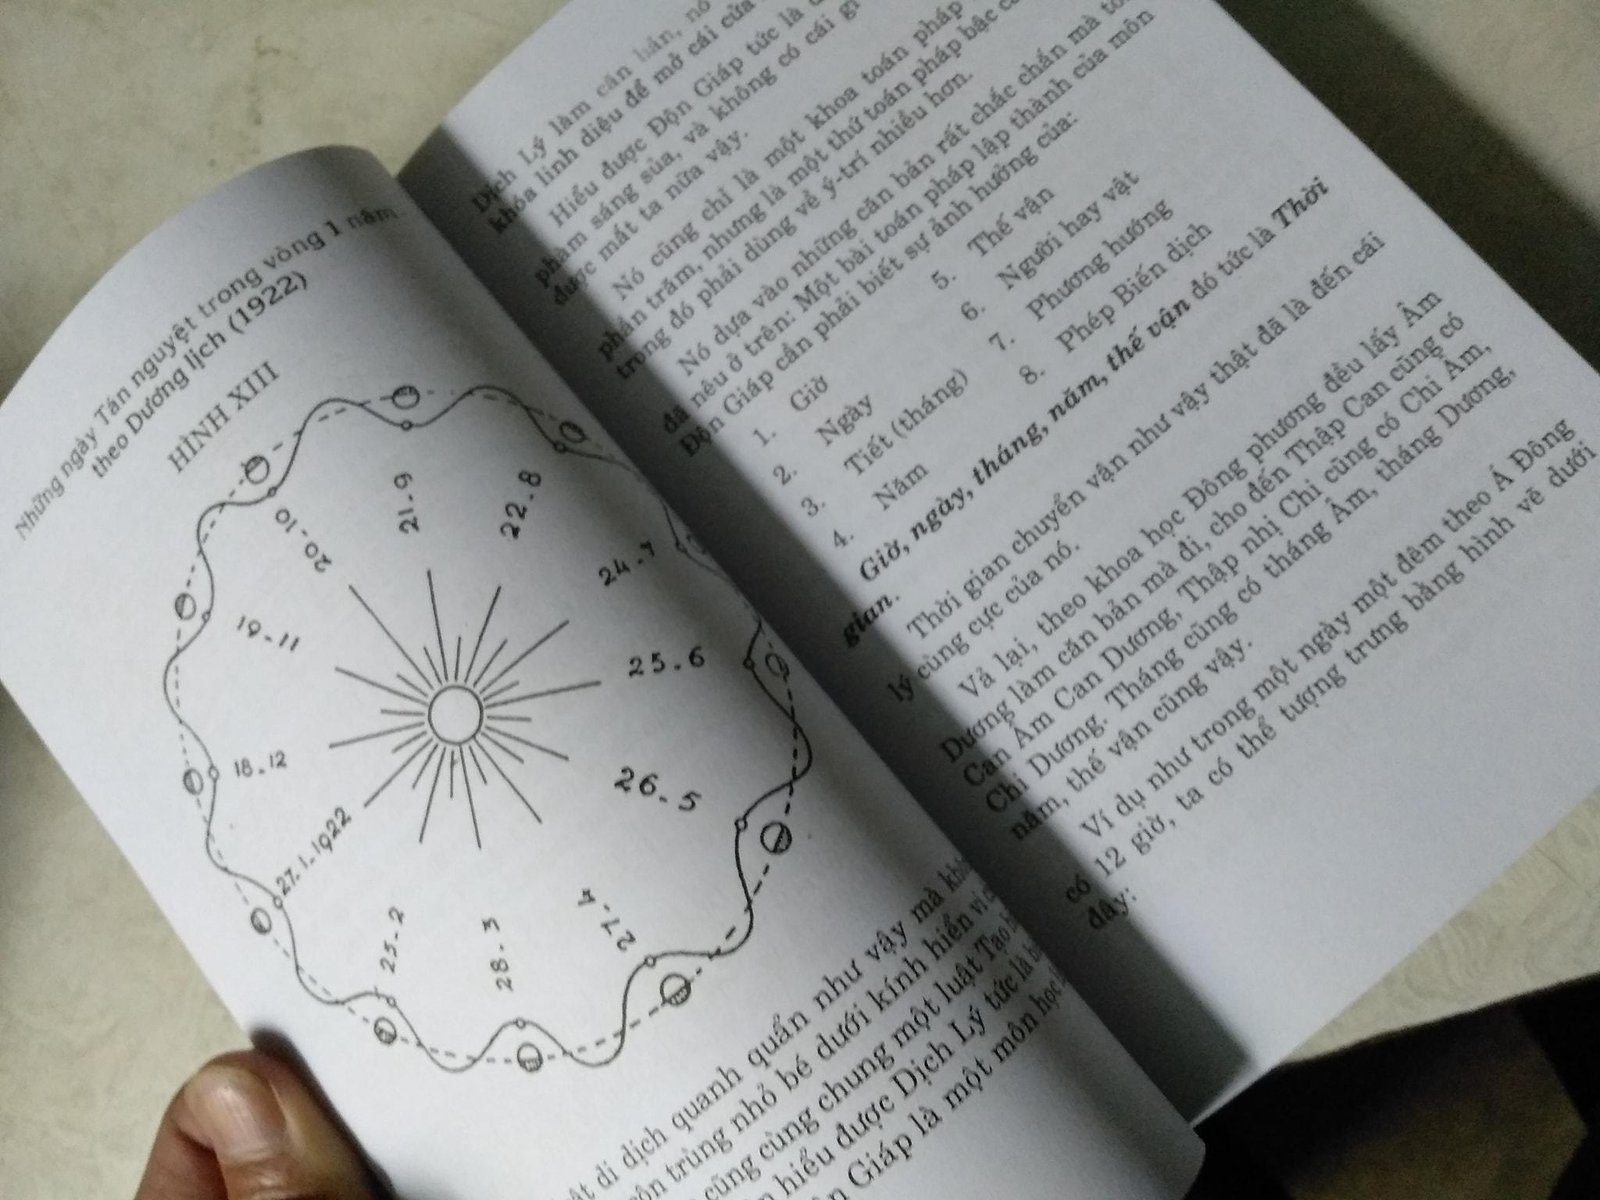 Những ngày Tân nguyệt trong vòng 1 năm
theo Dương lịch (1922)
HÌNH XIII
21.9
22.8
20.10
24.7
19-11
25.6
18.12
26-5
27.1.1922
25.2
28.3
27.4
di dịch quanh quẩn như vậy mà
trùng nhỏ bé dưới kính hiển vi
cũng cùng chung một luật Tạo
hiểu được Dịch Lý tức là
Giáp là một môn học
Dịch Lý làm căn bản, nó
khóa linh diệu để mở cái cửa
Hiểu được Độn Giáp tức là
phàm sáng sủa, và không có cái gì
được mắt ta nữa vậy.
Nó cũng chỉ là một khoa toán pháp
phần trăm, nhưng là một thứ toán pháp bậc
trong đó phải dùng về ý-trí nhiều hơn.
Nó dựa vào những căn bản rất chắc chắn mà
đã nêu ở trên: Một bài toán pháp lập thành của môn
Độn Giáp cần phải biết sự ảnh hưởng của:
1. Giờ 5. Thế vận
2. Ngày 6. Người hay vật
3. Tiết (tháng) 7. Phương hướng
4. Năm 8. Phép Biến dịch
Giờ, ngày, tháng, năm, thế vận đó tức là Thời
gian.
Thời gian chuyển vận như vậy thật đã là đến cái
lý cùng cực của nó.
Vả lại, theo khoa học Đông phương đều lấy Âm
Dương làm căn bản mà đi, cho đến Thập Can cũng có
Can Âm Can Dương, Thập nhị Chi cũng có Chi Âm,
Chi Dương. Tháng cũng có tháng Âm, tháng Dương,
năm, thế vận cũng vậy.
Ví dụ như trong một ngày một đêm theo Á Đông
có 12 giờ, ta có thể tượng trưng bằng hình vẽ dưới
đây: